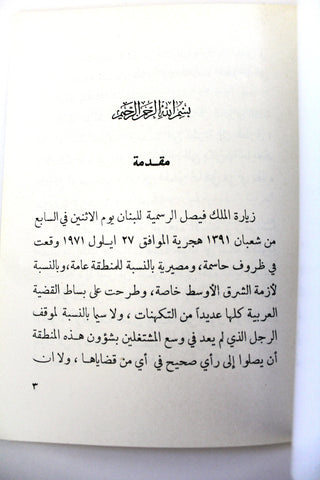 بسم الله الرحمن الرحيم
مقدمة
زيارة الملك فيصل الرسمية للبنان يوم الاثنين في السابع
من شعبان ١٣٩١ هجرية الموافق ٢٧ ايلول ١٩٧١ وقعت
في ظروف حاسمة، ومصيرية بالنسبة للمنطقة عامة، وبالنسبة
لأزمة الشرق الأوسط خاصة، وطرحت على بساط القضية
العربية كلها عديداً من التكهنات، ولا سيما بالنسبة لموقف
الرجل الذي لم يعد في وسع المشتغلين بشؤون هذه المنطقة
أن يصلوا إلى رأي صحيح في أي من قضاياها، ولا ان
٣